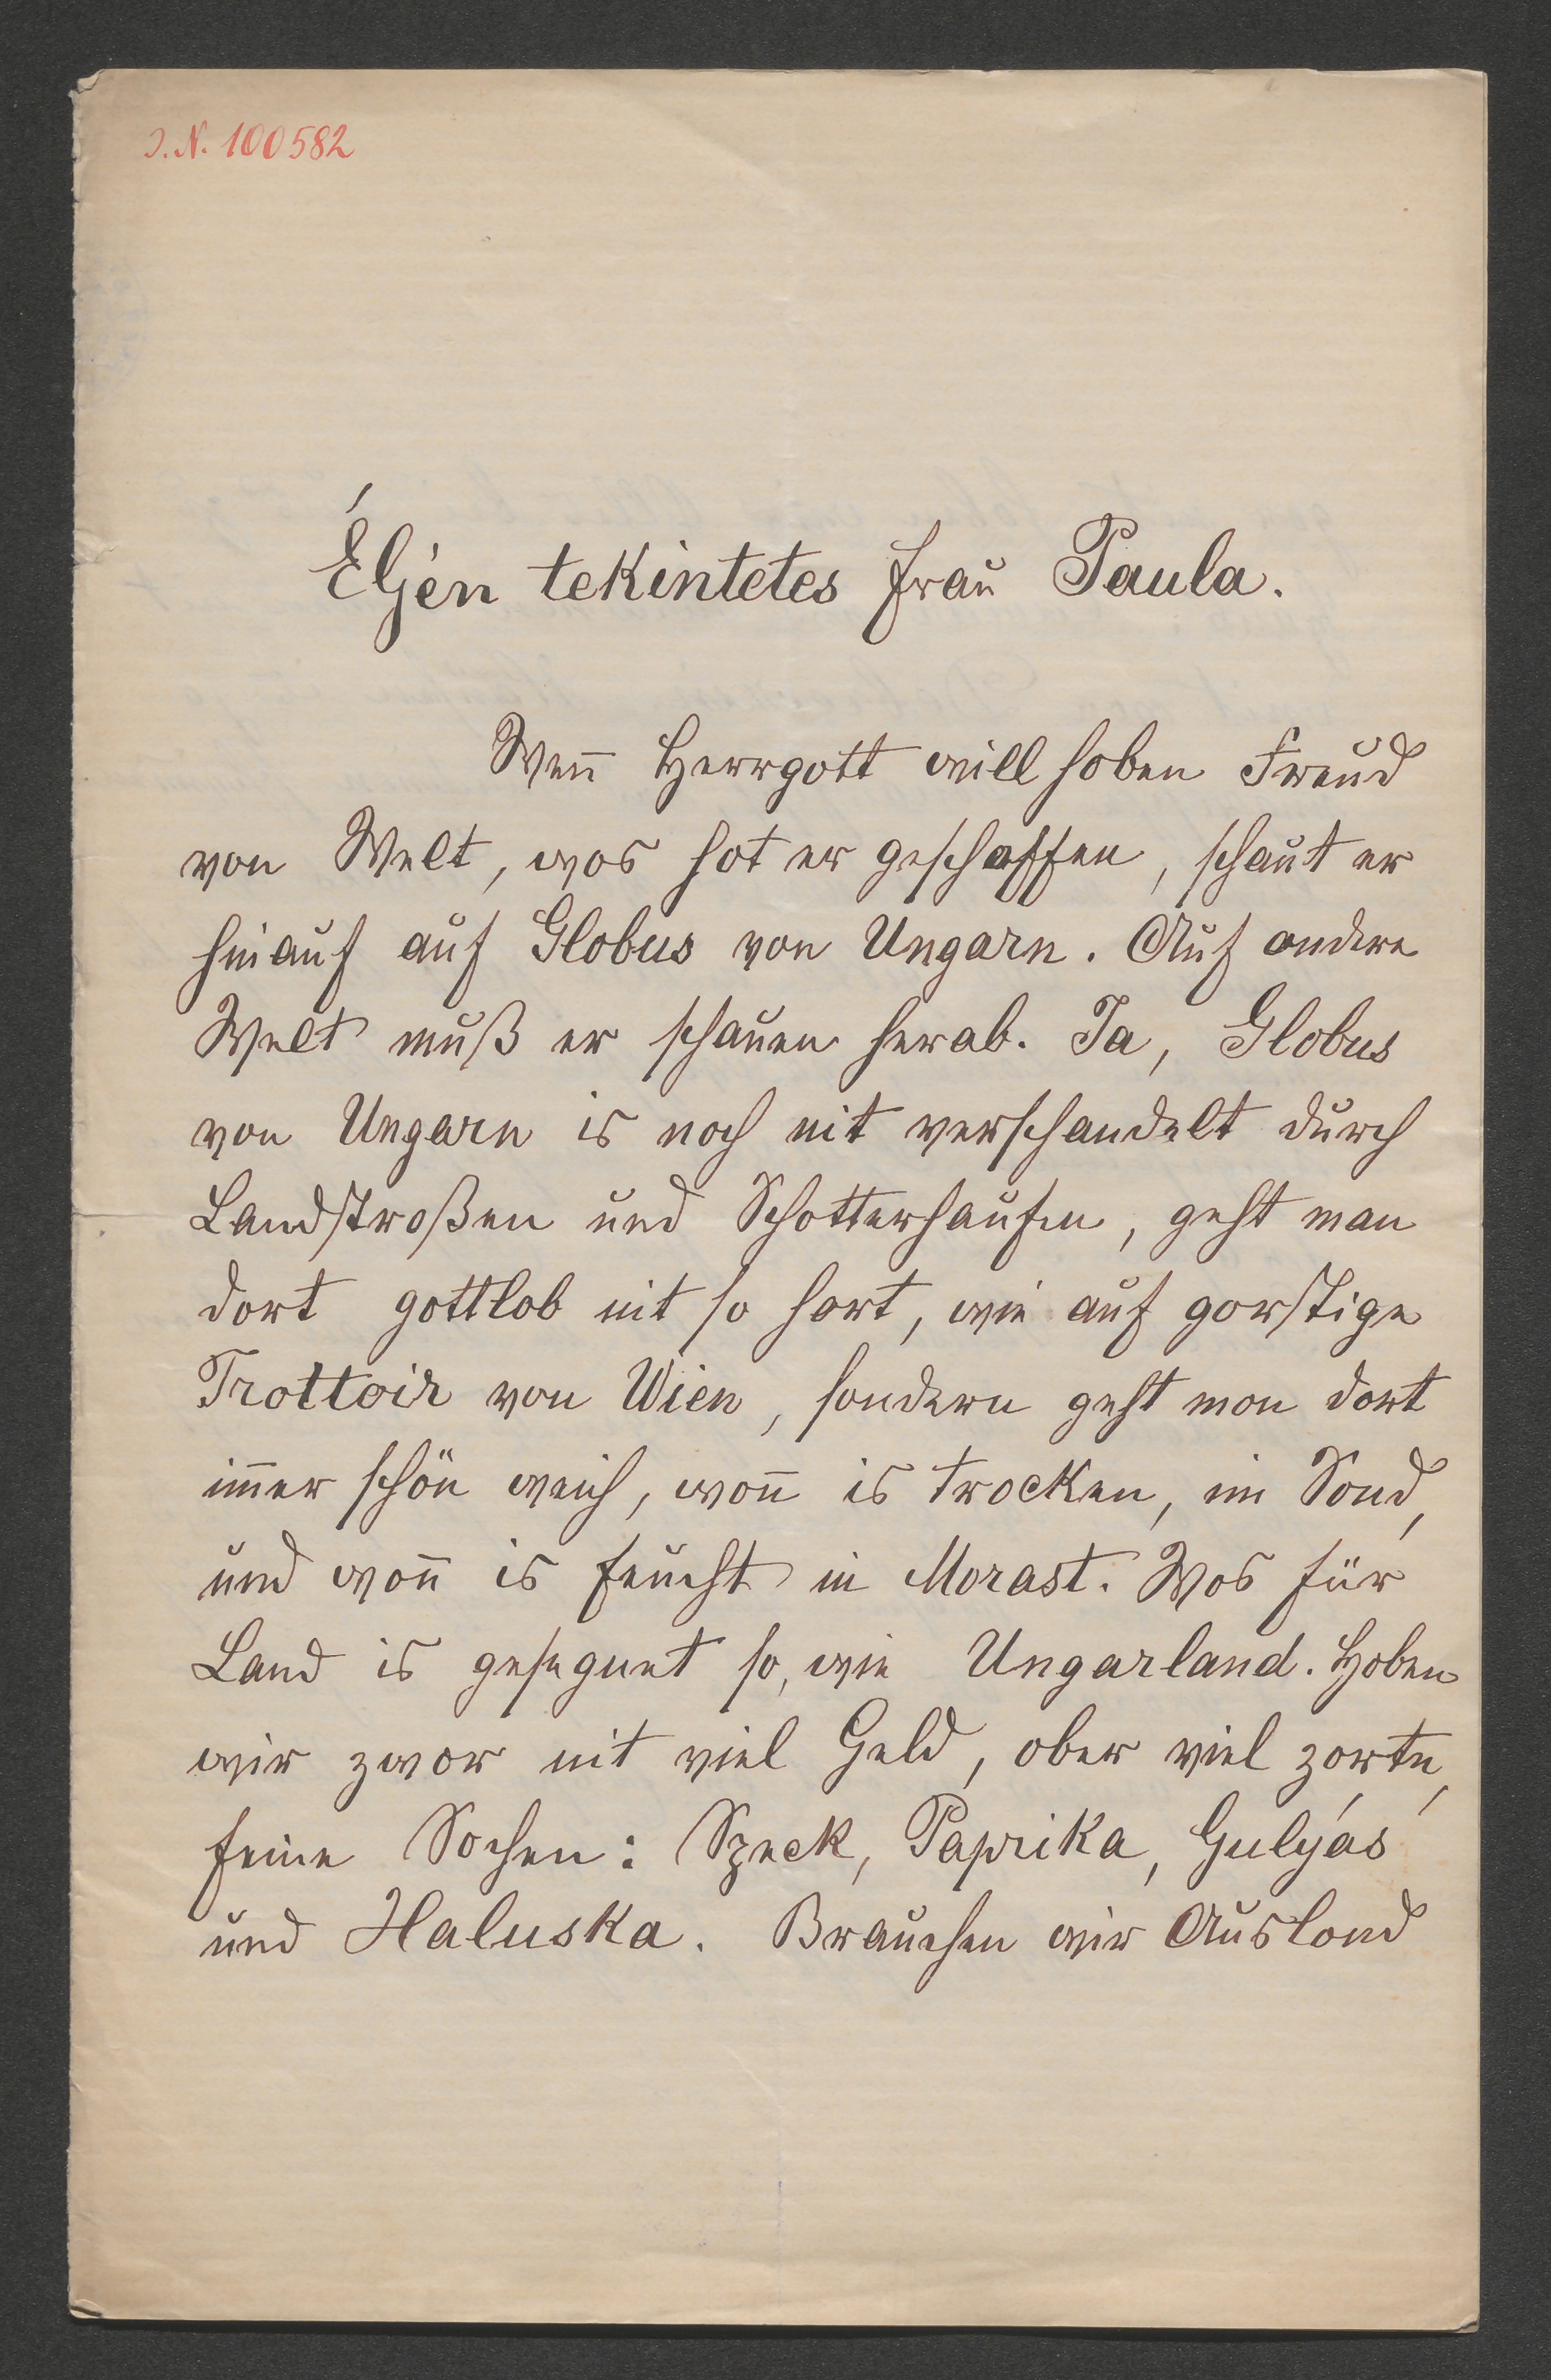 I.N. 100582
Éljen tekintetes Frau Paula.
Wen̄ Herrgott will hoben Freud
von Welt, wos hot er geschaffen, schaut er
hinauf auf Globus von Ungarn. Auf ondere
Welt muß er schauen herab. Ja, Globus
von Ungarn is noch nit verschandelt durch
Landstroßen und Schotterhaufen, geht man
dort gottlob nit so hort, wie auf gorstige
Trottoir von Wien, sondern geht mon dort
im̄er schön weich, won̄ is trocken, im Sond,
und won̄ is feucht in Morast. Wos für
Land is gesegnet so, wie Ungarland. Hoben
wir zwor nit viel Geld, ober viel zorte,
feine Sochen: Speck, Paprika, Gulyás
und Haluska. Brauchen wir Auslond